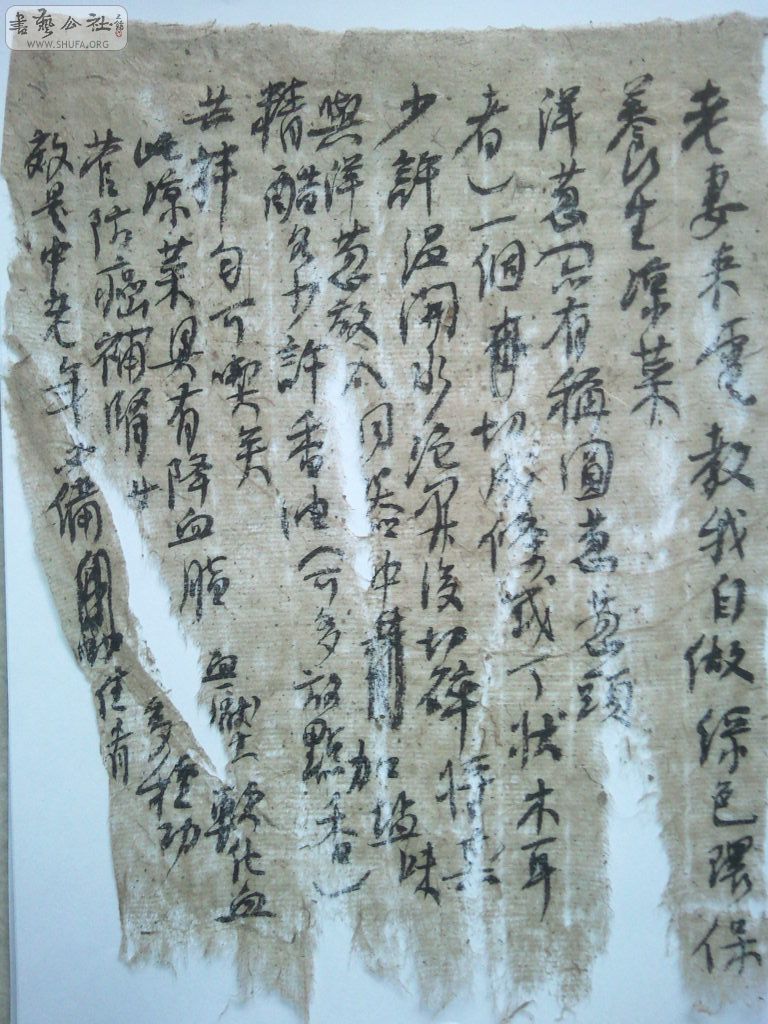 書藝公社
WWW.SHUFA.ORG
老妻来電教我自做綠色環保
養生凉菜
洋葱又有稱圓葱葱頭
者)一個切成條或丁狀木耳
少許温開水泡開後切碎将其
與洋葱放入同器中加鹽味
精醋各少許香油(可多放點香)
苦拌匀可喫矣
此凉菜具有降血脂血壓軟化血
管防癌補腎多種功
效是中老年必備佳肴